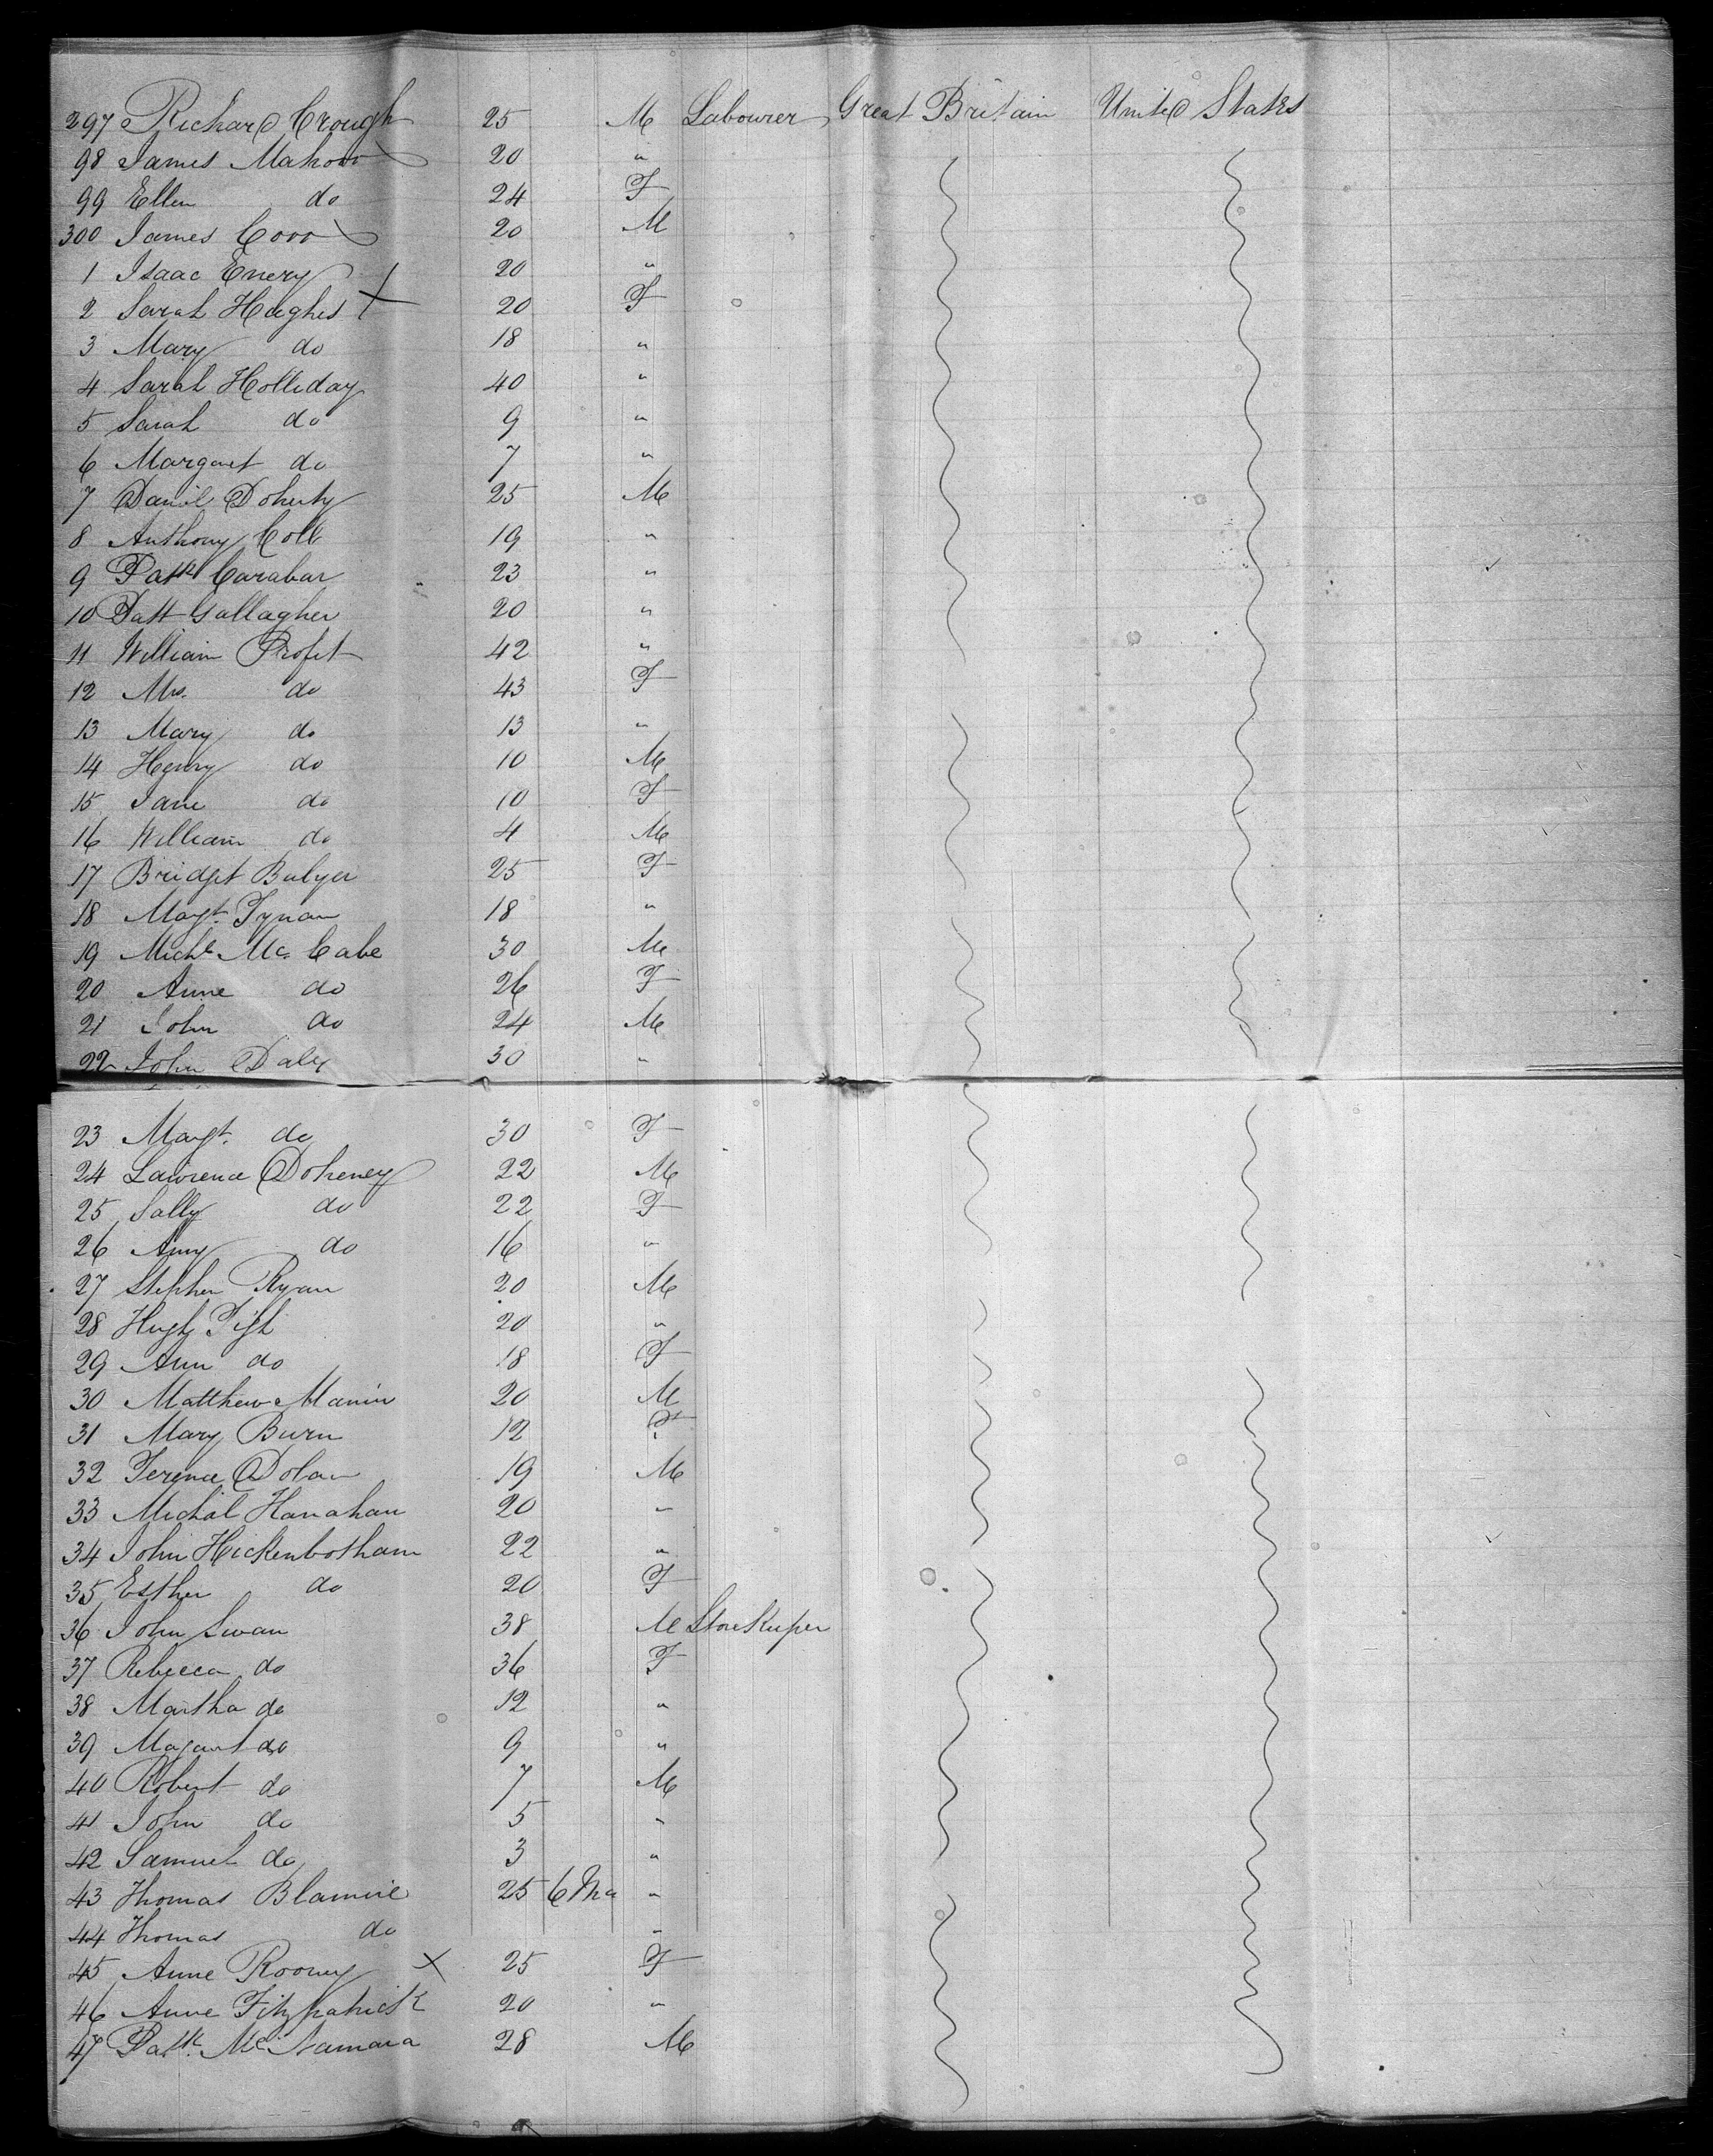 297 Richard Crough 25 M Labourer Great Britain United States
98 James Mahon 20 "
99 Ellen do 24 F
300 James Coon 20 M
1 Isaac Enery 20 "
2 Sarah Hughes X 20 F
3 Mary do 18 "
4 Sarah Holliday 40 "
5 Sarah do 9 "
6 Margaret do 7 "
7 Daniel Doherty 25 M
8 Anthony Coll 19 "
9 Patk Carabar 23 "
10 Patt Gallagher 20 "
11 William Profit 42 "
12 Mrs. do 43 F
13 Mary do 13 "
14 Henry do 10 M
15 Jane do 10 F
16 William do 4 M
17 Bridget Bulger 25 F
18 Margt. Tynan 18 "
19 Michl Mc Cabe 30 M
20 Anne do 26 F
21 John do 24 M
22 John Daly 30 "
23 Margt. do 30 F
24 Lawrence Doheney 22 M
25 Sally do 22 F
26 Amy do 16 "
27 Stephen Ryan 20 M
28 Hugh 20 "
29 Ann do 18 F
30 Matthew Manin 20 M
31 Mary Burn 12 F
32 Terence Dolan 19 M
33 Michal Hanahan 20 "
34 John Hickenbotham 22 "
35 Esther do 20 F
36 John Swan 38 M Storekeeper
37 Rebecca do 36 F
38 Martha do 12 "
39 Magaret do 9 "
40 Robert do 7 M
41 John do 5 "
42 Samuel do 3 "
43 Thomas Blamire 25 6 Mo "
44 Thomas do "
45 Anne Rooney X 25 F
46 Anne Fitzpatrick 20 "
47 Patk. Mc Namara 28 M